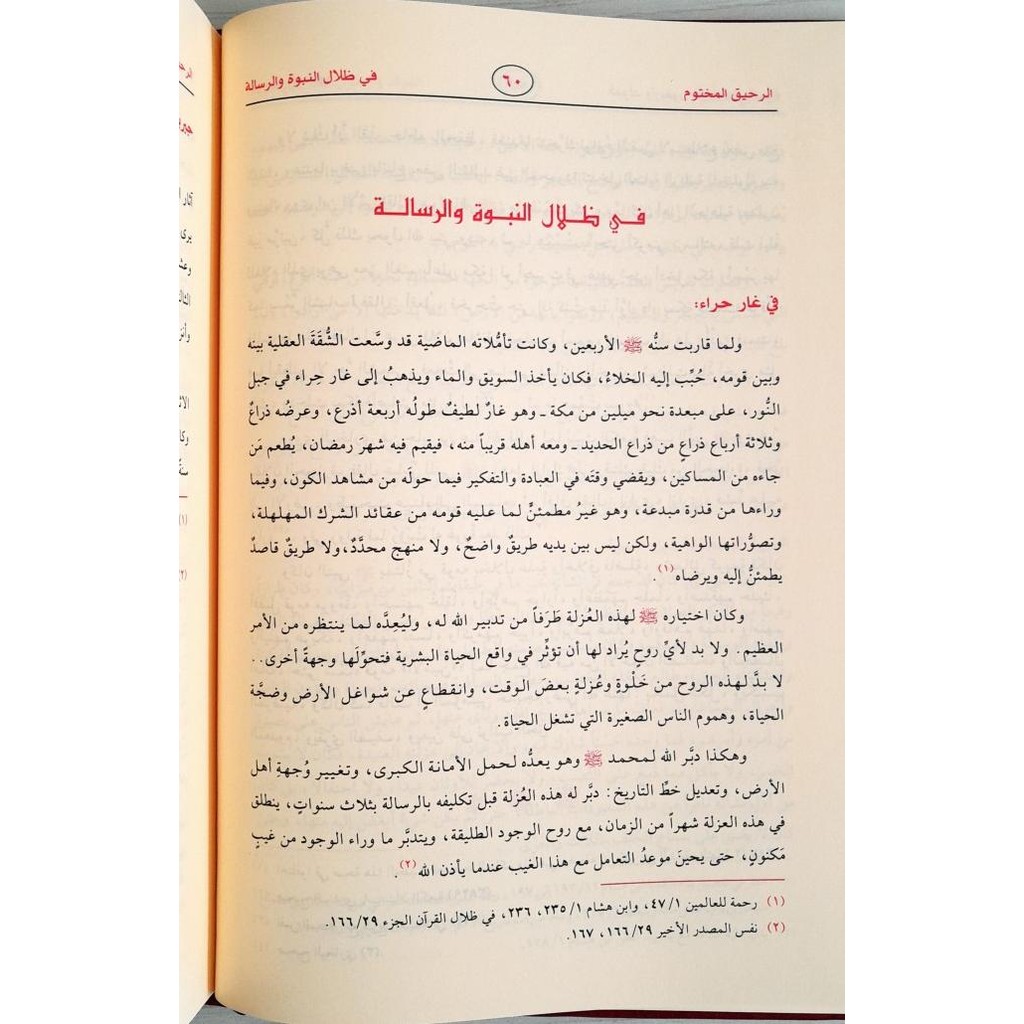 الرحيق المختوم
٦٠
في ظلال النبوة والرسالة
في ظلال النبوة والرسالة
في غار حراء:
ولما قاربت سنُّه ﷺ الأربعين، وكانت تأمُّلاته الماضية قد وسَّعت الشُّقَةَ العقلية بينه
وبين قومه، حُبِّب إليه الخلاءُ، فكان يأخذ السويق والماء ويذهبُ إلى غار حِراء في جبل
النُّور، على مبعدة نحو ميلين من مكة ـ وهو غارٌ لطيفٌ طولُه أربعة أذرع، وعرضُه ذراعٌ
وثلاثة أرباع ذراعٍ من ذراع الحديد ـ ومعه أهله قريباً منه، فيقيم فيه شهرَ رمضان، يُطعم مَن
جاءه من المساكين، ويقضي وقتَه في العبادة والتفكير فيما حولَه من مشاهد الكون، وفيما
وراءها من قدرة مبدعة، وهو غيرُ مطمئنٍّ لما عليه قومه من عقائد الشرك المهلهلة،
وتصوُّراتها الواهية، ولكن ليس بين يديه طريقٌ واضحٌ، ولا منهج محدَّدٌ، ولا طريقٌ قاصدٌ
يطمئنُّ إليه ويرضاه(١).
وكان اختياره ﷺ لهذه العُزلة طَرَفاً من تدبير الله له، وليُعِدَّه لما ينتظره من الأمر
العظيم. ولا بد لأيِّ روحٍ يُراد لها أن تؤثِّر في واقع الحياة البشرية فتحوِّلَها وجهةً أخرى..
لا بدَّ لهذه الروح من خَلْوةٍ وعُزلةٍ بعضَ الوقت، وانقطاعٍ عن شواغل الأرض وضجَّة
الحياة، وهموم الناس الصغيرة التي تشغل الحياة.
وهكذا دبَّر الله لمحمد ﷺ وهو يعدُّه لحمل الأمانة الكبرى، وتغيير وُجهةِ أهل
الأرض، وتعديل خطِّ التاريخ: دبَّر له هذه العُزلة قبل تكليفه بالرسالة بثلاث سنواتٍ، ينطلق
في هذه العزلة شهراً من الزمان، مع روح الوجود الطليقة، ويتدبَّر ما وراء الوجود من غيبٍ
مَكنونٍ، حتى يحينَ موعدُ التعامل مع هذا الغيب عندما يأذن الله(٢).
(١) رحمة للعالمين ٤٧/١، وابن هشام ٢٣٥/١، ٢٣٦، في ظلال القرآن الجزء ١٦٦/٢٩.
(٢) نفس المصدر الأخير ١٦٦/٢٩، ١٦٧.